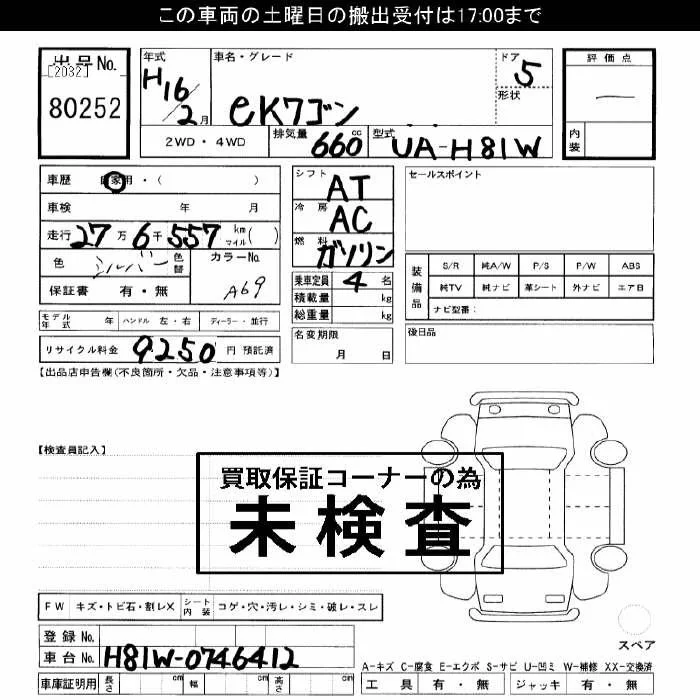 この車両の土曜日の搬出受付は17:00まで
出品No.
[2032]
80252
年式
H16/2月
車名・グレード
eKワゴン
ドア
5
形状
評価点
内装
2WD・4WD
排気量 660 cc
型式 UA-H81W
車歴 自家用・( )
車検 年 月
走行 27万6千557 km マイル( )
色 シルバー 色替
カラーNo. A69
保証書 有・無
モデル年式 年 ハンドル 左・右 ディーラー・並行
リサイクル料金 9250 円 預託済
シフト AT
冷房 AC
燃料 ガソリン
乗車定員 4 名
積載量 kg
総重量 kg
名変期限
月 日
セールスポイント
装備品
S/R 純A/W P/S P/W ABS
純TV 純ナビ 革シート 外ナビ エアB
ナビ型番:
後日品
【出品店申告欄(不良箇所・欠品・注意事項等)】
【検査員記入】
買取保証コーナーの為
未検査
FW キズ・トビ石・割レX シート内装 コゲ・穴・汚レ・シミ・破レ・スレ
登録No.
車台No. H81W-0746412
車庫証明用 長さ cm 幅 cm 高さ cm
スペア
A-キズ C-腐食 E-エクボ S-サビ U-凹ミ W-補修 XX-交換済
工具 有・無 ジャッキ 有・無